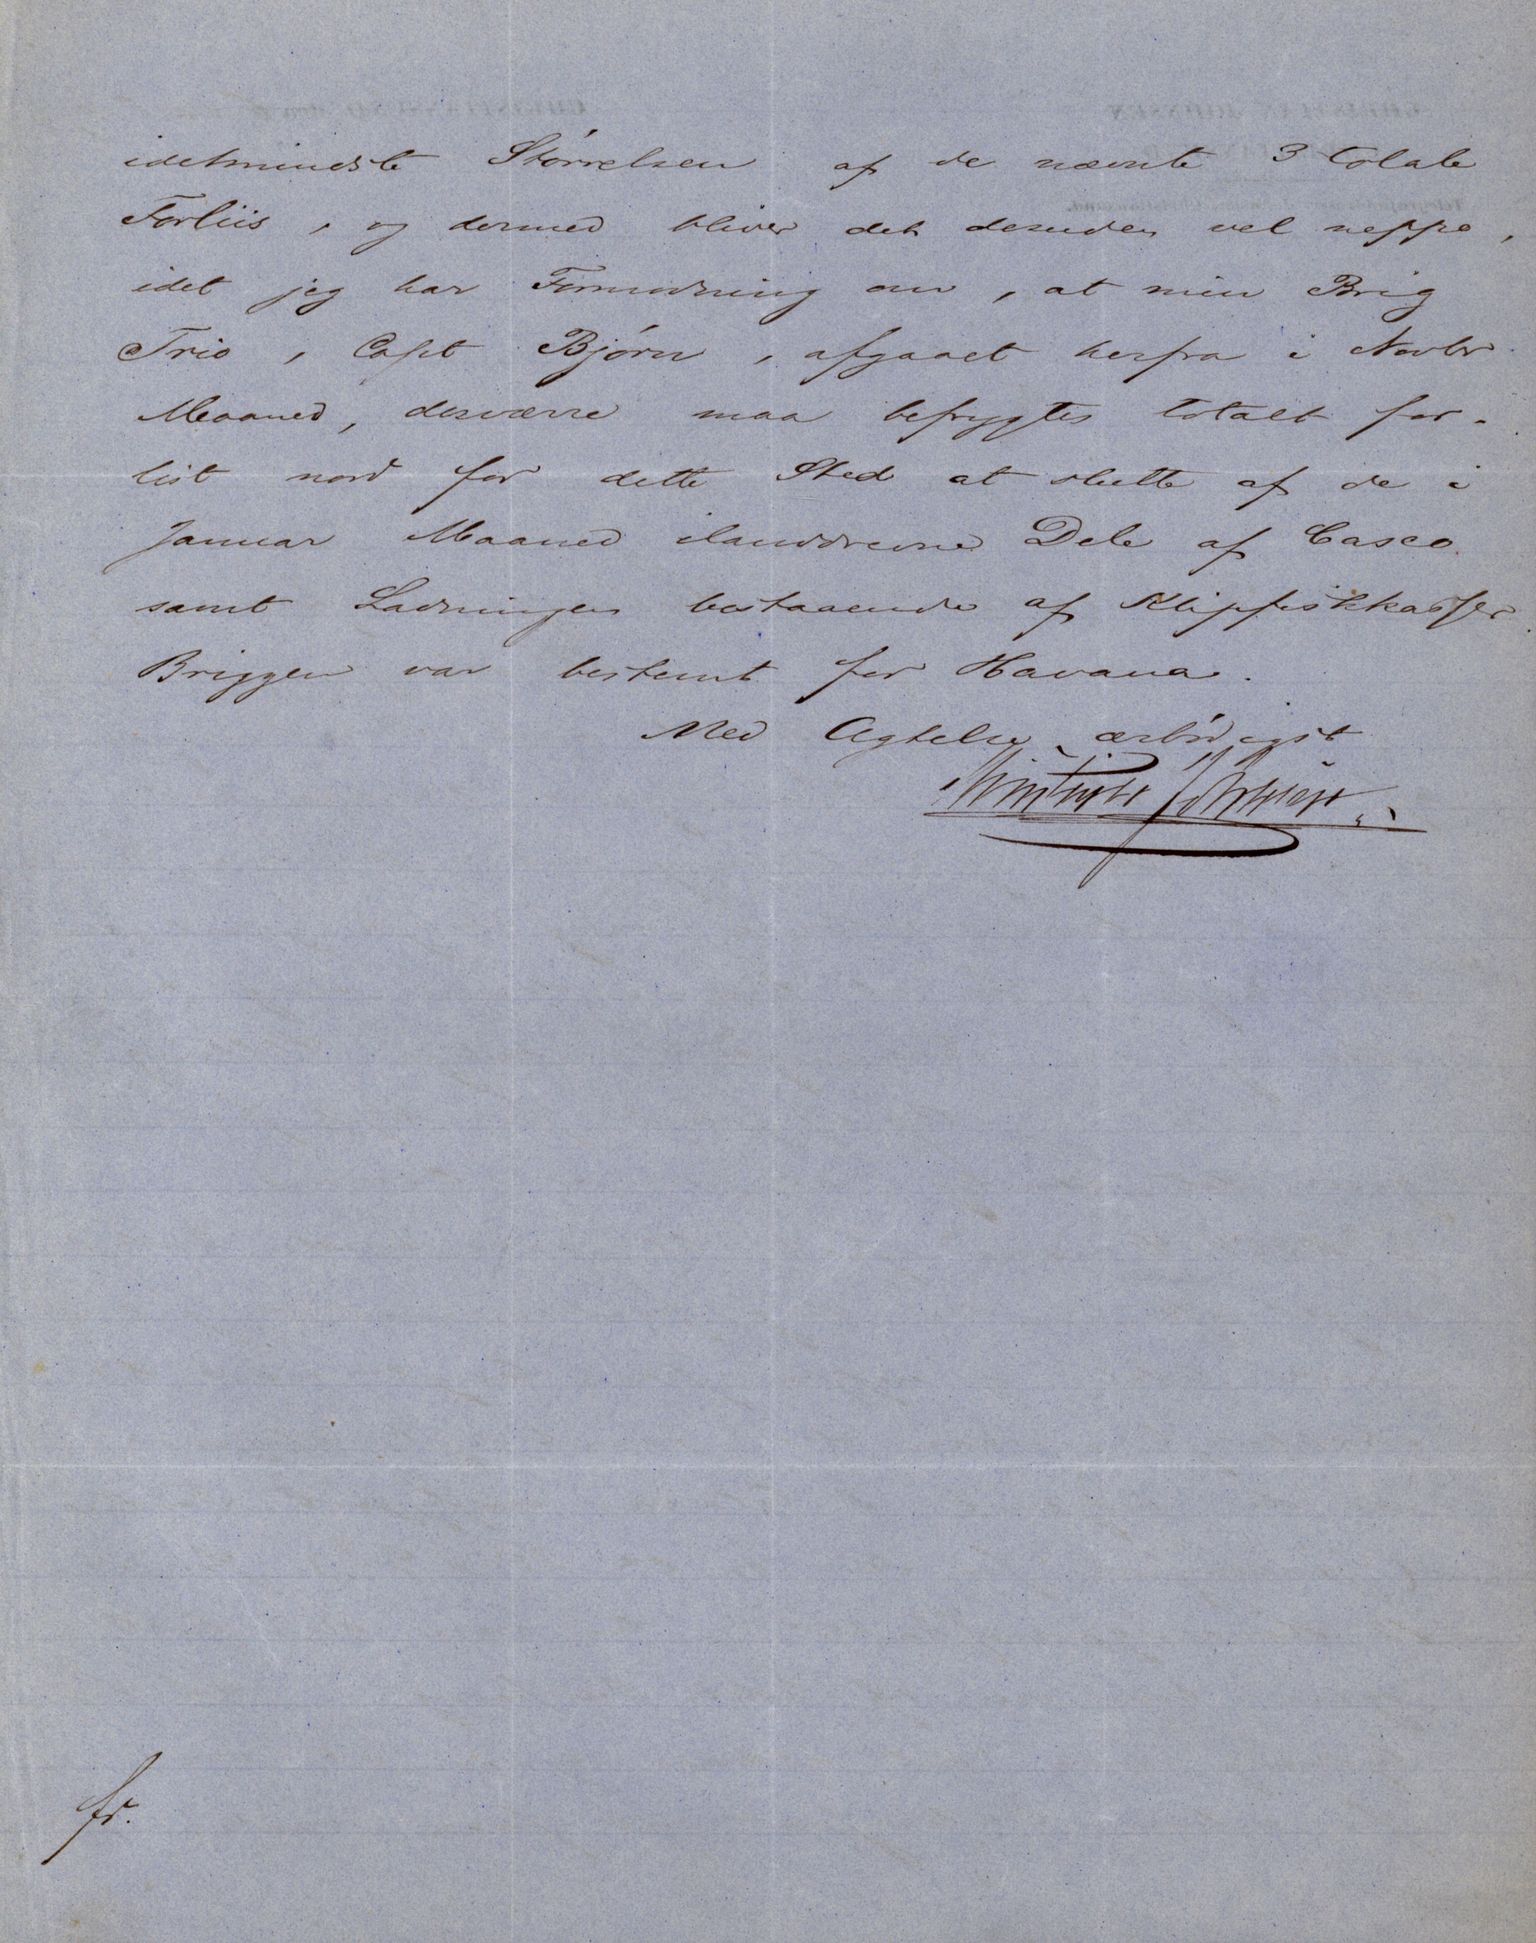 idetmindste Størrelsen af de nævnte 3 totale
Forliis, og dermed bliver det desuden vel neppe,
idet jeg har Formodning om, at min Brig
Trio, Capt Bjørn, afgaaet herfra i Novbr
Maaned, desværre maa befrygtes totalt for-
list nord for dette Sted at slutte af de i
Januar Maaned ilanddrevne Dele af Casco
samt Ladningen bestaaende af Klipfiskkasser
Briggen var bestemt for Havana.
Med Agtelse ærbødigst
Christian Johnsen
fr.